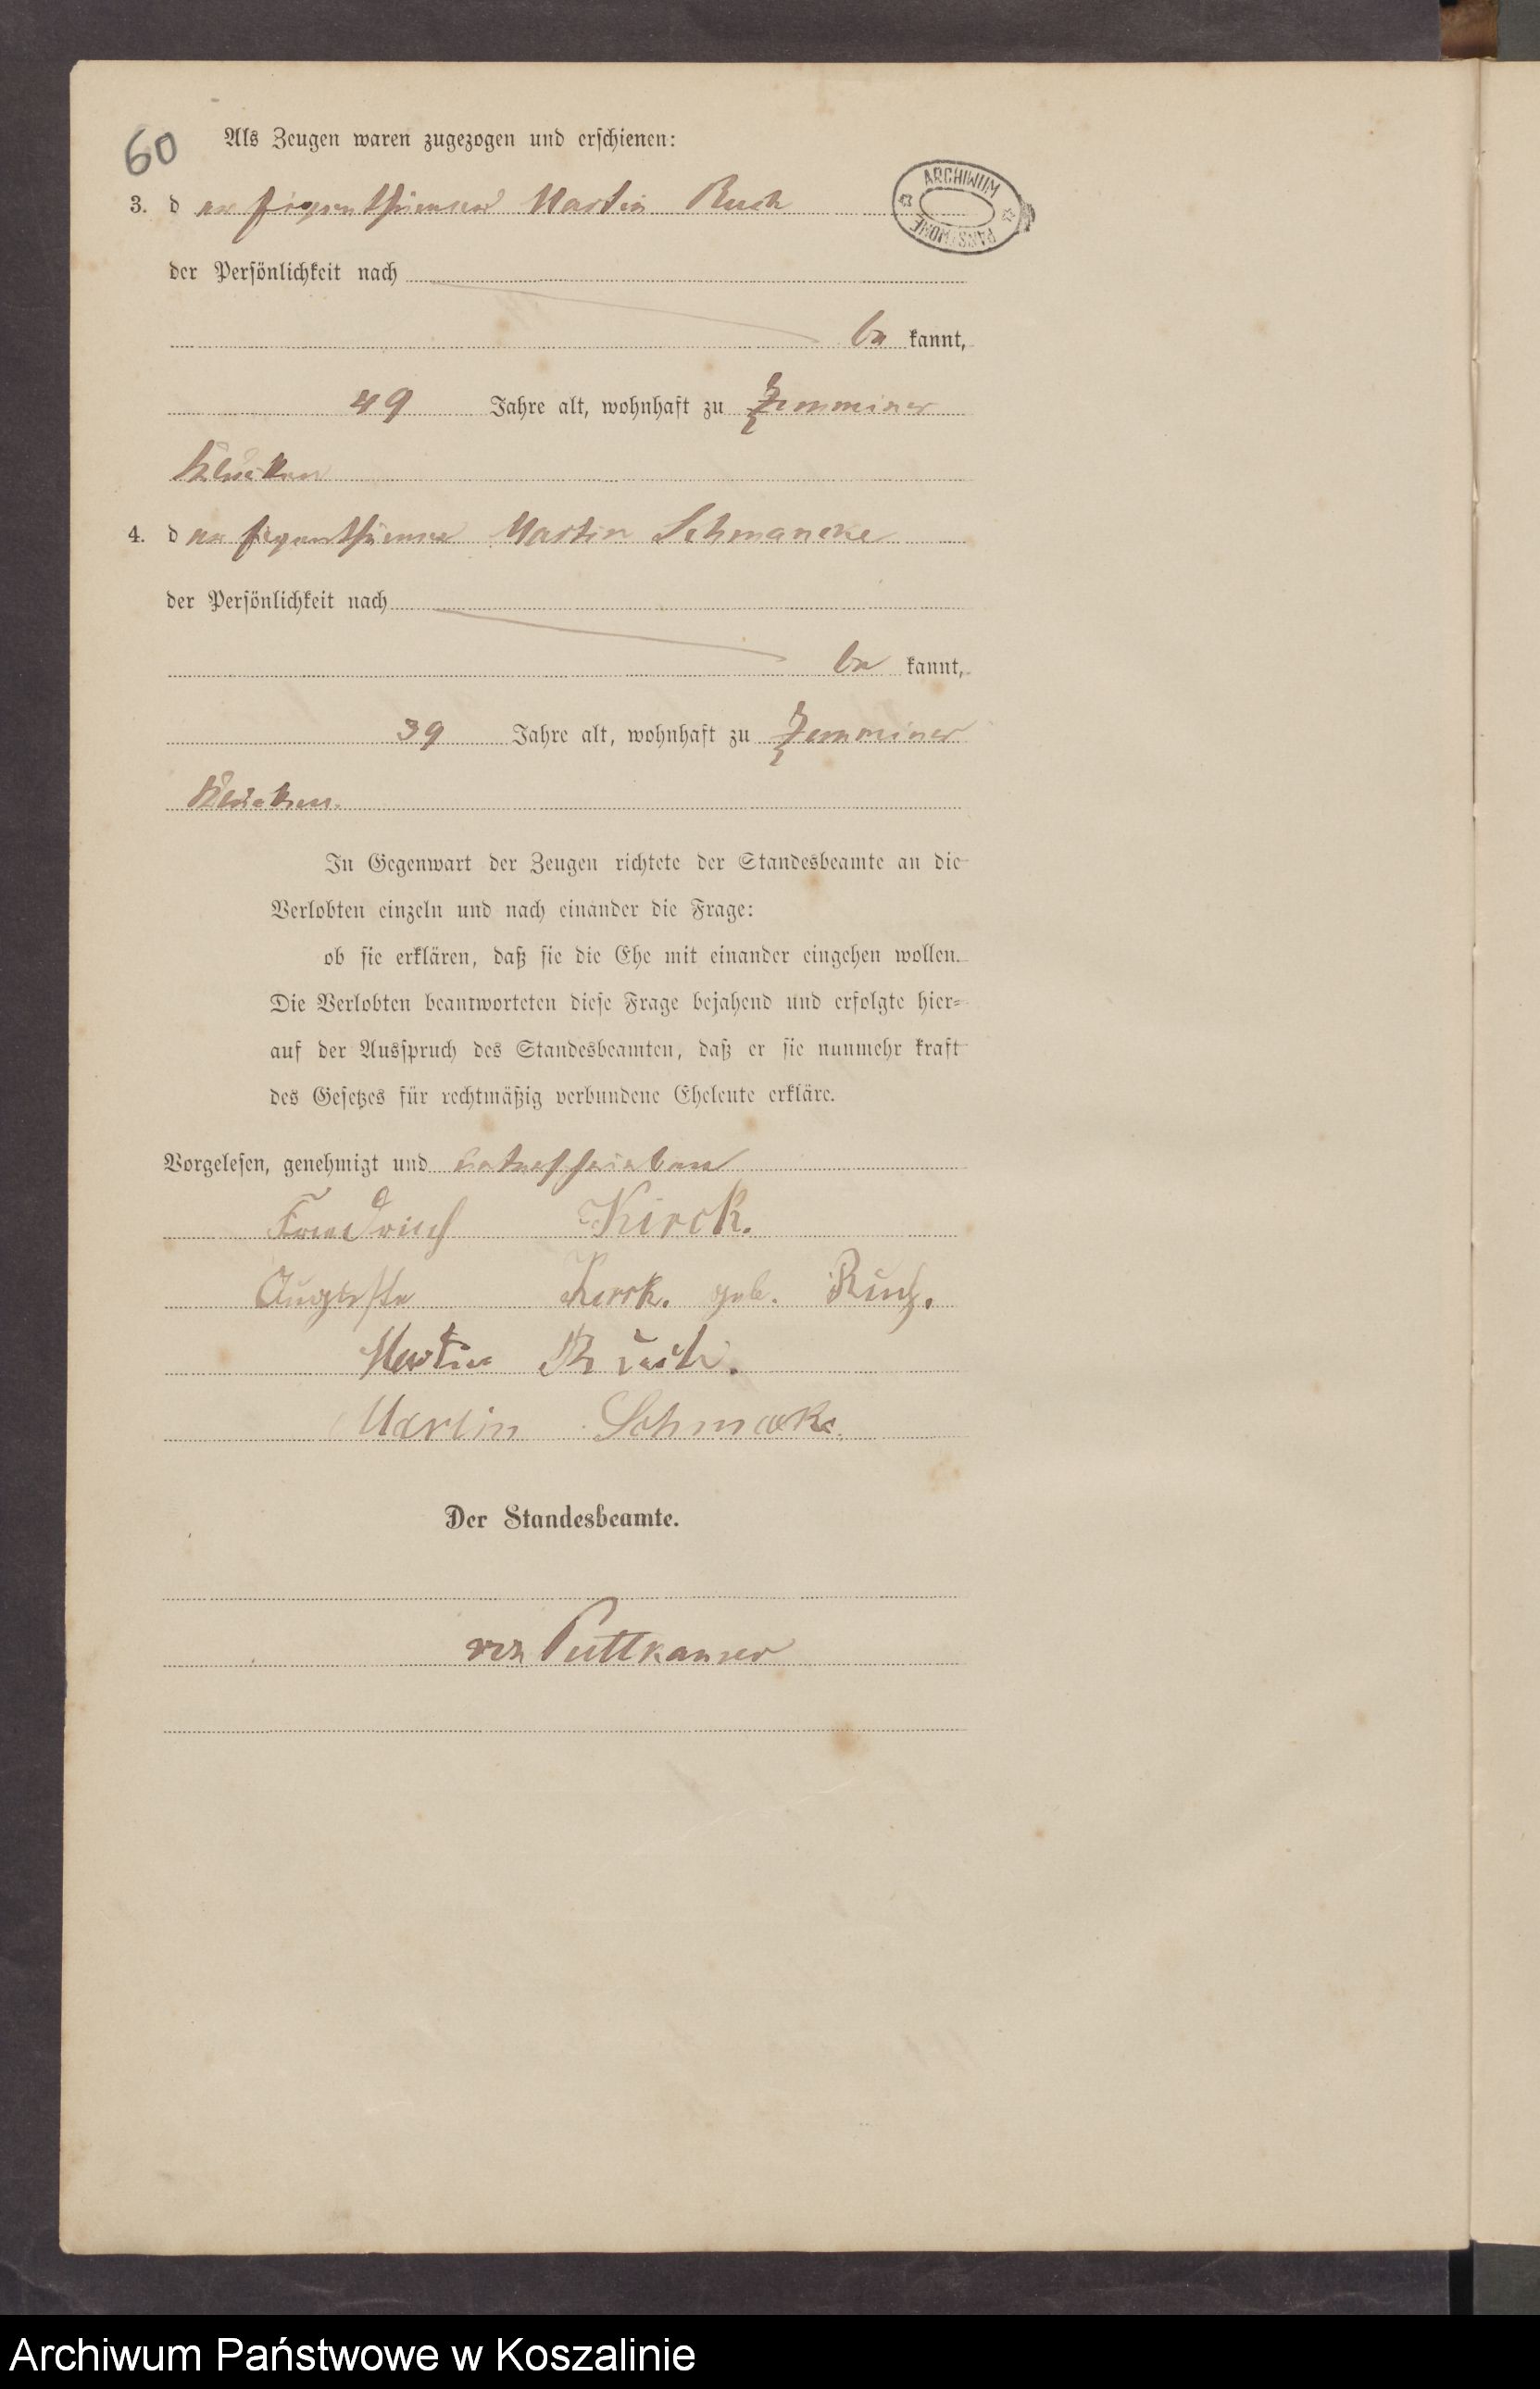 60
Als Zeugen waren zugezogen und erschienen:
ARCHIWUM PAŃSTWOWE
3. der Eigenthümer Martin Ruch
der Persönlichkeit nach
be kannt,
49 Jahre alt, wohnhaft zu Zemminer
Klucken
4. der Eigenthümer Martin Schmancke
der Persönlichkeit nach
be kannt,
39 Jahre alt, wohnhaft zu Zemminer
Klucken.
In Gegenwart der Zeugen richtete der Standesbeamte an die
Verlobten einzeln und nach einander die Frage:
ob sie erklären, daß sie die Ehe mit einander eingehen wollen.
Die Verlobten beantworteten diese Frage bejahend und erfolgte hier-
auf der Ausspruch des Standesbeamten, daß er sie nunmehr kraft
des Gesetzes für rechtmäßig verbundene Eheleute erkläre.
Vorgelesen, genehmigt und unterschrieben
Friedrich Kirck.
Auguste Kirck. geb. Ruch.
Martin Ruch.
Martin
Der Standesbeamte.
von Puttkamer
Archiwum Państwowe w Koszalinie